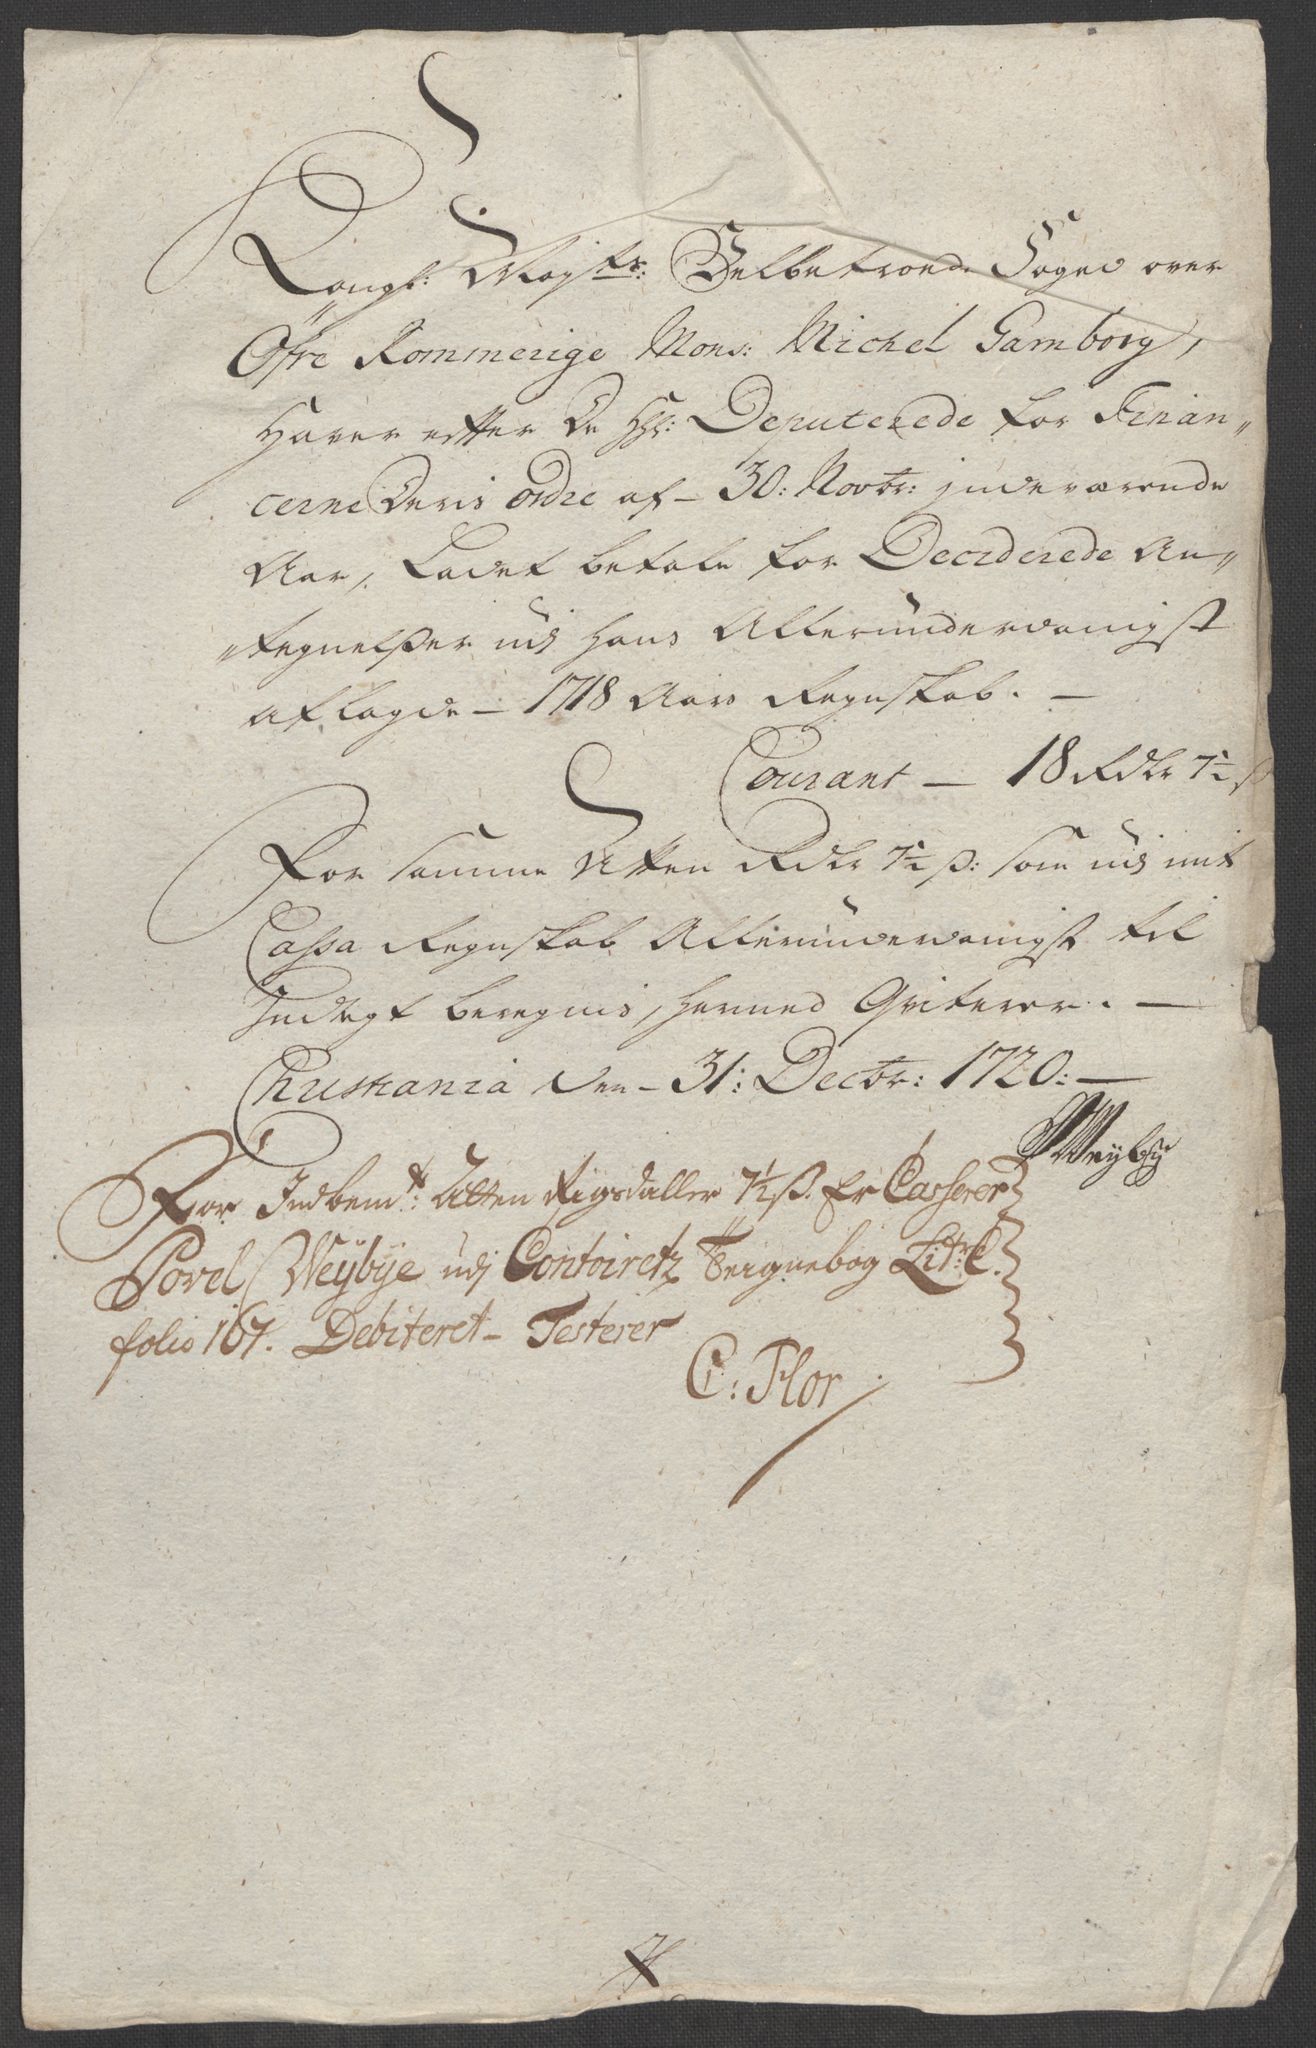 Kongl: Mayts: Velbetroed Foged over
Øfre Rommerige Mons: Michel Gamborg,
Haver efter De HHr: Deputerede for Finan„
cerne Deris ordre af – 30: Novbr: indeværende
Aar, Ladet betale for Deciderede An„
„tegnelsser udj Hans Allerunderdanigst
aflagde – 1718 Aars Regnskab. –
Courant – 18 Rdlr 7½ ß
For samme Atten Rdlr 7½ ß: som udj mit
Cassa Regnskab Allerunderdanigst til
Indtegt beregnis, Hermed Qviterer. –
Christiania den – 31: Decbr: 1720: –
PWeybye
For Indbemte: Atten Rigsdaller 7½ ß. Er Casserer
Povel Weybye udj Contoiretz Teignebog Litr: C.
folio 167. Debiteret – Testerer
C: Flor